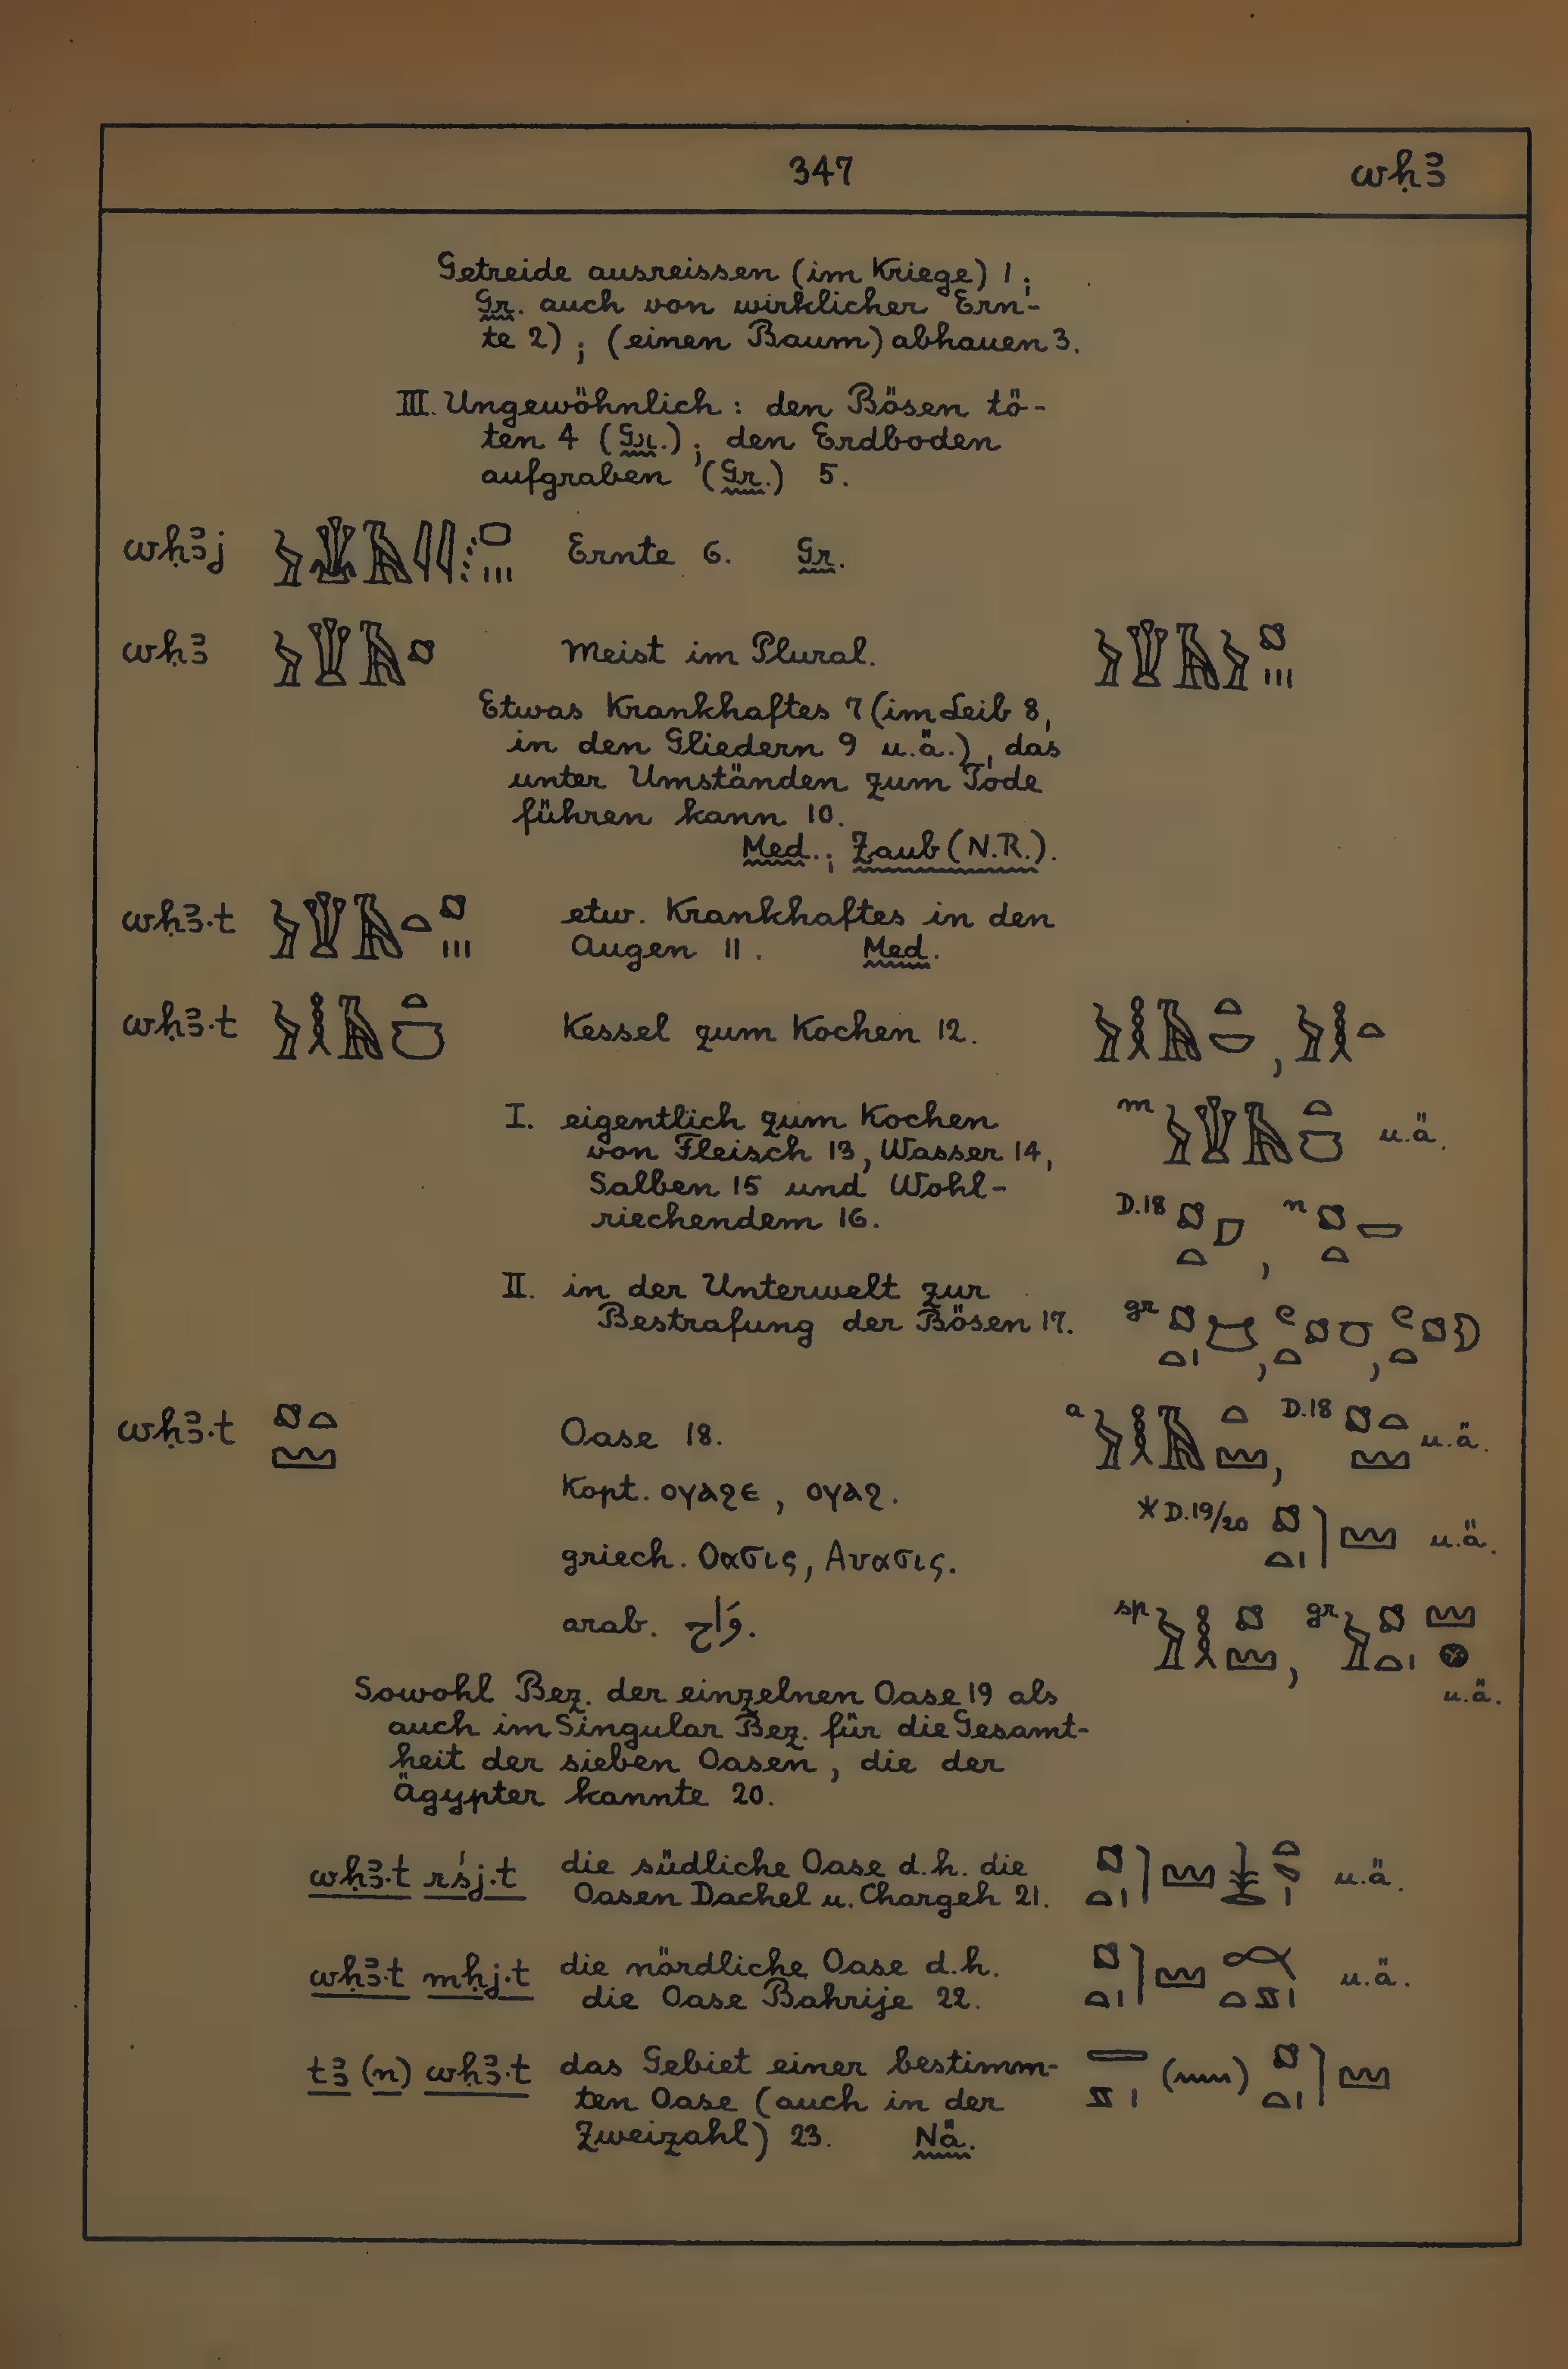 347 wḥꜣ
Getreide ausreissen (im Kriege) 1;
Gr. auch von wirklicher Ern-
te 2); (einen Baum) abhauen 3.
III. Ungewöhnlich: den Bösen tö-
ten 4 (Gr.); den Erdboden
aufgraben (Gr.) 5.
wḥꜣj Ernte 6. Gr.
wḥꜣ Meist im Plural.
Etwas Krankhaftes 7 (im Leib 8,
in den Gliedern 9 u.ä.), das
unter Umständen zum Tode
führen kann 10.
Med.; Zaub (N.R.).
wḥꜣ.t etw. Krankhaftes in den
Augen 11. Med.
wḥꜣ.t Kessel zum Kochen 12.
I. eigentlich zum Kochen m u.ä.
von Fleisch 13, Wasser 14,
Salben 15 und Wohl-
riechendem 16. D.18 , n
II. in der Unterwelt zur
Bestrafung der Bösen 17. gr , ,
wḥꜣ.t Oase 18. a , D.18 u.ä.
Kopt. ⲟⲩⲁϩⲉ, ⲟⲩⲁϩ.
* D.19/20 u.ä.
griech. Οασις, Αυασις.
arab. وَاح. sp , gr u.ä.
Sowohl Bez. der einzelnen Oase 19 als
auch im Singular Bez. für die Gesamt-
heit der sieben Oasen, die der
Ägypter kannte 20.
wḥꜣ.t rśj.t die südliche Oase d.h. die u.ä.
Oasen Dachel u. Chargeh 21.
wḥꜣ.t mḥj.t die nördliche Oase d.h. u.ä.
die Oase Bahrije 22.
tꜣ (n) wḥꜣ.t das Gebiet einer bestimm-
ten Oase (auch in der
Zweizahl) 23. Nä.